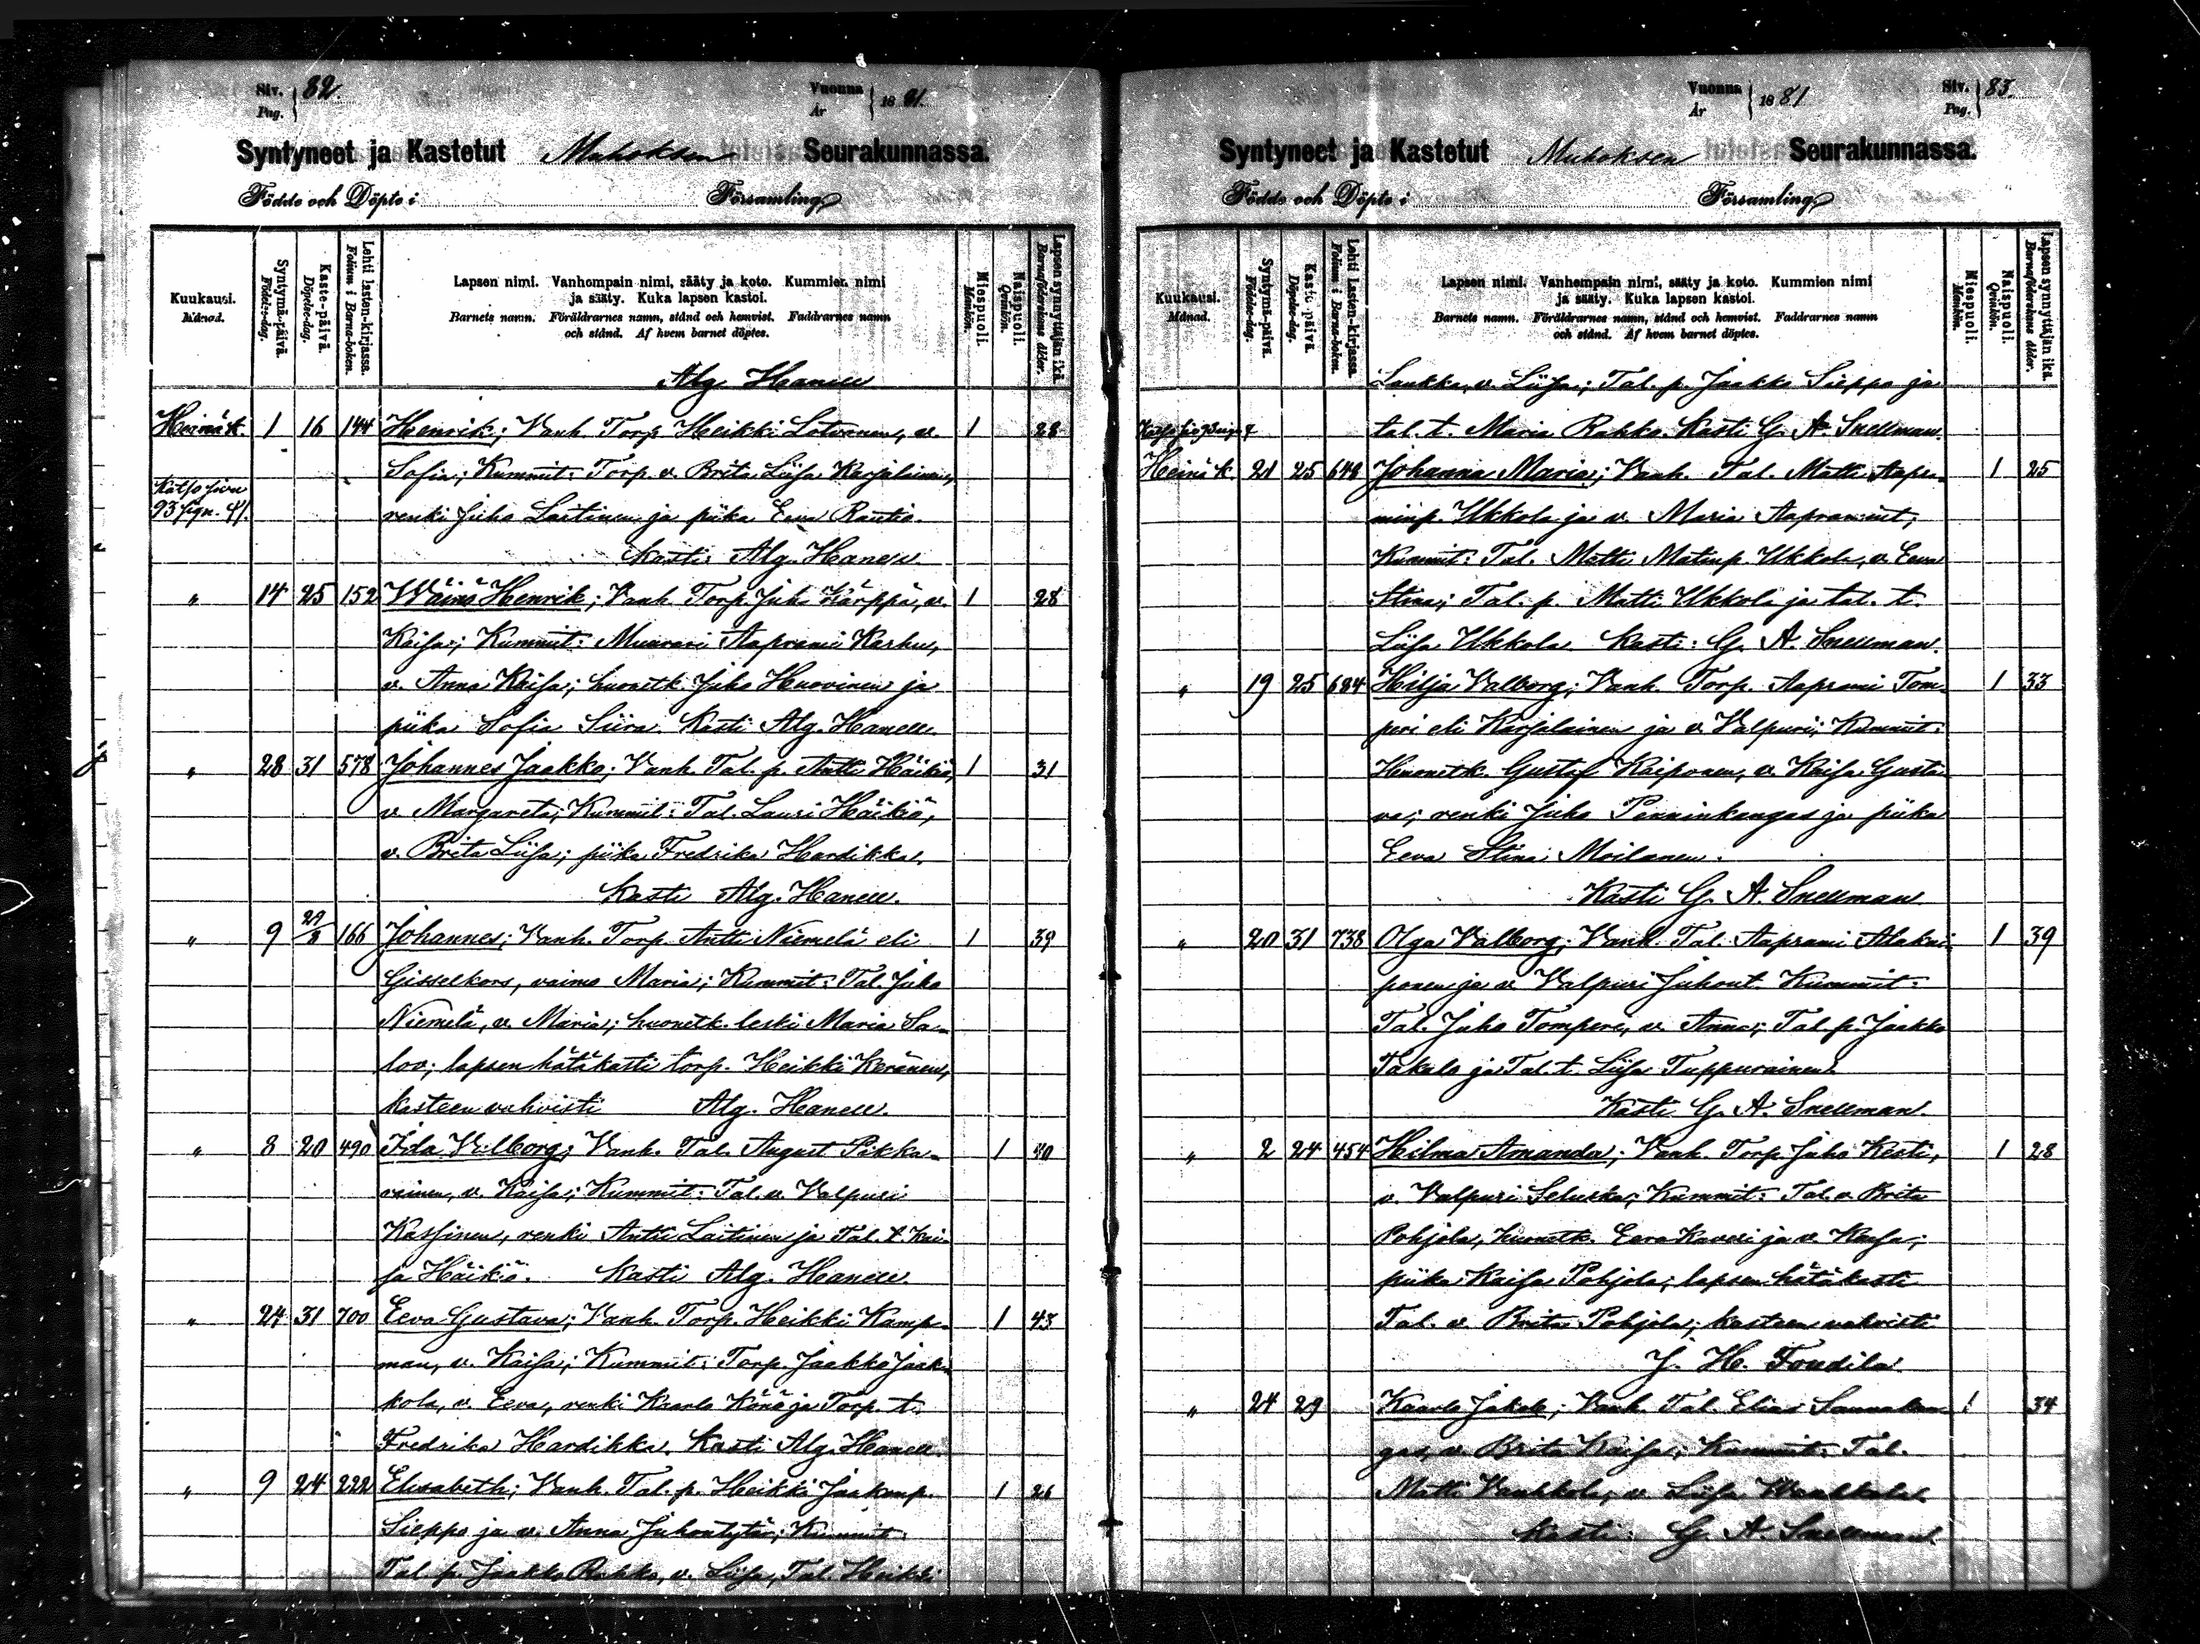 Siv. Pag. 82.
Vuonna År 1881.
Syntyneet ja Kastetut Muhoksen Seurakunnassa.
Födde och Döpte i Församling
Kuukausi. Månad.
Syntymä-päivä. Födelse-dag.
Kaste-päivä. Döpelse-dag.
Lehti lasten-kirjassa. Folium i Barna-boken.
Lapsen nimi. Vanhempain nimi, sääty ja koto. Kummien nimi
ja sääty. Kuka lapsen kastoi.
Barnets namn. Föräldrarnes namn, stånd och hemvist. Faddrarnes namn
och stånd. Af hvem barnet döptes.
Miespuoli. Mankön.
Naispuoli. Qvinkön.
Lapsen synnyttäjän ikä. Barnaföderskans ålder.
Alg. Hanell
Heinäk. 1 16 144 Henrik; Vanh. Torp. Heikki Lotvonen, v. 1 28
Sofia; Kummit: Torp. v. Brita Liisa Karjalainen,
Katso sivu
93 sign. 4/.
renki Juho Laitinen ja piika Eeva Rautio.
Kasti: Alg. Hanell.
" 14 25 152 Wäinö Henrik; Vanh. Torp. Juho Kärppä, v. 1 28
Kaisa; Kummit: Muurari Aaprami Karhu,
v. Anna Kaisa; huonetk. Juho Huovinen ja
piika Sofia Siira. Kasti Alg. Hanell.
" 28 31 578 Johannes Jaakko; Vanh. Tal. p. Antti Häikiö, 1 31
v. Margareta; Kummit: Tal. Lauri Häikiö,
v. Brita Liisa; piika Fredrika Hardikka.
Kasti Alg. Hanell.
" 9 166 Johannes; Vanh. Torp. Antti Niemelä eli 1 39
Gisselkors, vaimo Maria; Kummit: Tal. Juho
Niemelä, v. Maria; huonetk. leski Maria Sa-
loo; lapsen hätäkasti torp. Heikki Keränen,
kasteen vahvisti Alg. Hanell.
" 8 20 490 Ida Vilborg; Vanh. Tal. August Pikka- 1 40
rainen, v. Kaisa; Kummit: Tal. v. Valpuri
Kassinen, renki Antti Laitinen ja Tal. t. Kai-
sa Häikiö. Kasti Alg. Hanell
" 24 31 700 Eeva Gustava; Vanh. Torp. Heikki Kamp- 1 43
man, v. Kaisa; Kummit: Torp. Jaakko Jaak-
kola, v. Eeva, renki Kaarlo Könö ja Torp. t.
Fredrika Hardikka. Kasti Alg. Hanell.
" 9 24 222 Elisabeth; Vanh. Tal. p. Heikki Jaakonp. 1 26
Sieppo ja v. Anna Juhontytär; Kummit:
Tal. p. Jaakko Rahko, v. Liisa, Tal. Heikki
Siv. Pag. 83.
Vuonna År 1881
Syntyneet ja Kastetut Muhoksen Seurakunnassa.
Födde och Döpte i Församling
Kuukausi. Månad.
Syntymä-päivä. Födelse-dag.
Kaste-päivä. Döpelse-dag.
Lehti Lasten-kirjassa. Folium i Barna-boken.
Lapsen nimi. Vanhempain nimi, sääty ja koto. Kummien nimi
ja sääty. Kuka lapsen kastoi.
Barnets namn. Föräldrarnes namn, stånd och hemvist. Faddrarnes namn
och stånd. Af hvem barnet döptes.
Miespuoli. Mankön.
Naispuoli. Qvinkön.
Lapsen synnyttäjän ikä. Barnaföderskans ålder.
Laukka, v. Liisa; Tal. p. Jaakko Sieppo ja
tal. t. Maria Rahko. Kasti G. A. Snellman.
Heinäk. 21 25 648 Johanna Maria; Vanh. Tal. Matti Aapra- 1 25
minp. Ukkola ja v. Maria Aapramint;
Kummit: Tal. Matti Matinp. Ukkola, v. Eeva
Stina; Tal. p. Matti Ukkola ja tal. t.
Liisa Ukkola Kasti: G. A. Snellman.
" 19 25 684 Hilja Valborg; Vanh. Torp. Aaprami Tom- 1 33
peri eli Karjalainen ja v. Valpuri; Kummit:
Huonetk. Gustaf Kaiponen, v. Kaisa Gusta-
va; renki Juho Penninkangas ja piika
Eeva Stina Moilanen.
Kasti G. A. Snellman
" 20 31 738 Olga Valborg; Vanh. Tal. Aaprami Alakai- 1 39
ponen ja v. Valpuri Juhont. Kummit:
Tal. Juho Tomperi, v. Anna; Tal. p. Jaakko
Takalo ja Tal. t. Liisa Tuppurainen.
Kasti G. A. Snellman.
" 2 24 454 Hilma Amanda; Vanh. Torp. Juho Kesti, 1 28
v. Valpuri Kummit: Tal. v. Brita
Pohjola, huonetk. Eera Kaveri ja v. Kaisa;
piika Kaisa Pohjola; lapsen hätäkasti
Tal. v. Brita Pohjola; kasteen vahvisti
J. H. Toudila
" 24 29 Kaarlo Jakob; Vanh. Tal. Elias Sannakan- 1 34
gas, v. Brita Kaisa; Kummit: Tal.
Matti Vanhkola, v. Liisa
Kasti: G. A. Snellman.